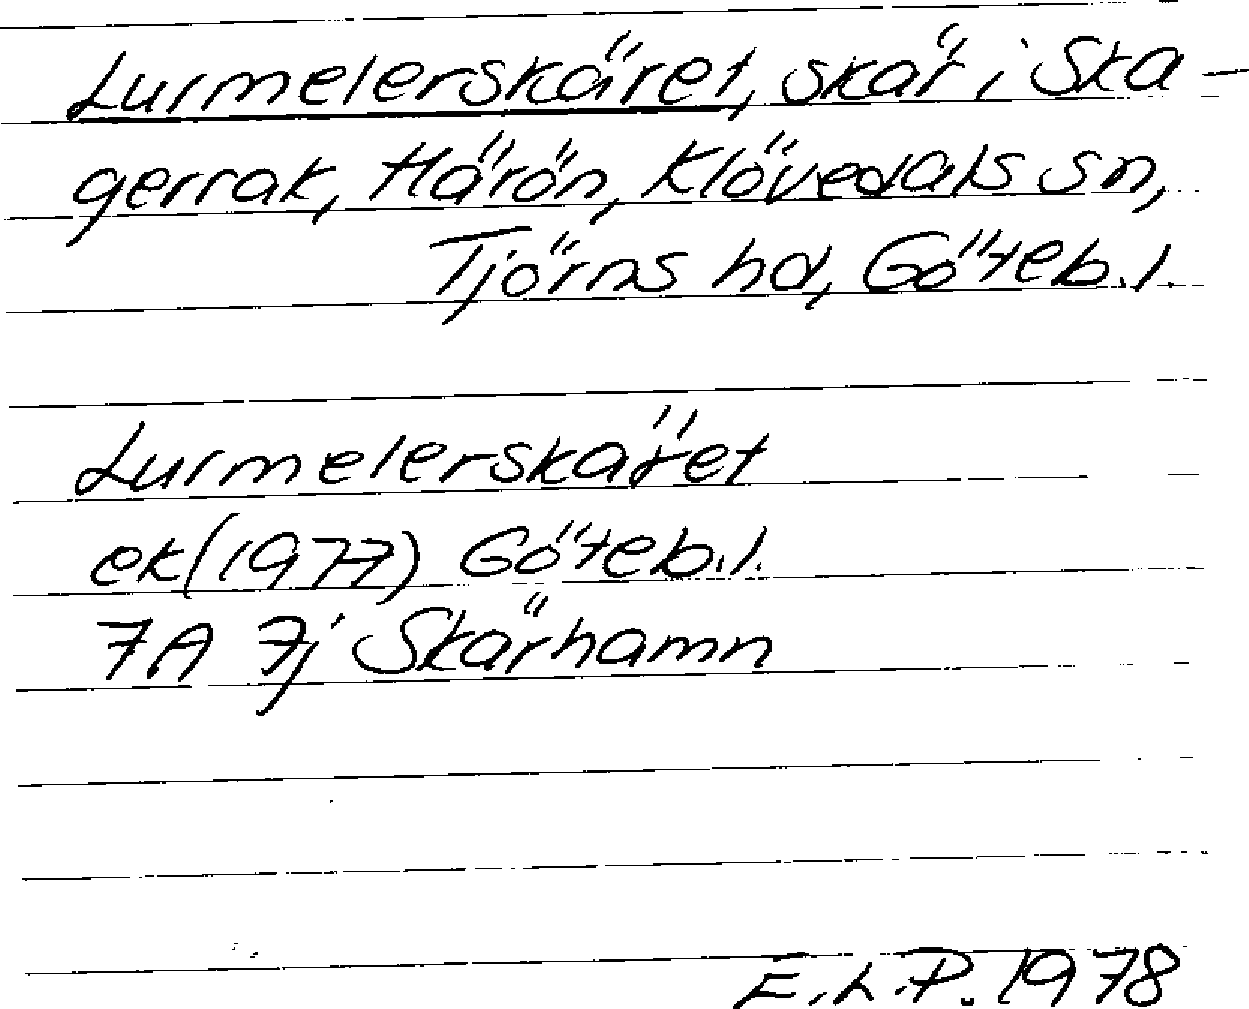 Lurmelerskäret, skär i Ska-
gerrak, Härön, Klövedals sn,
Tjörns hd, Göteb.l.
Lurmelerskäret
ek (1977) Göteb.l.
7A 7j Skärhamn
E.L.P. 1978